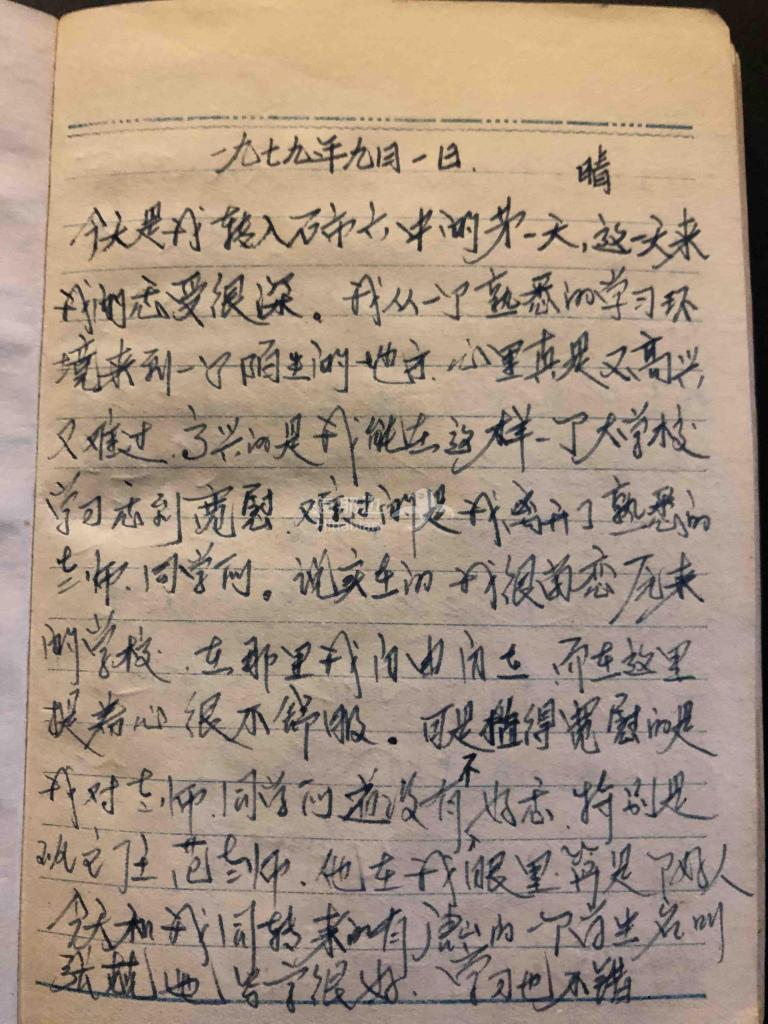 一九七九年九月一日. 晴
今天是我转入石市六中的第一天,这一天来
我的感受很深。我从一个熟悉的学习环
境来到一个陌生的地方.心里真是又高兴,
又难过.高兴的是我能在这样一个大学校
学习感到宽慰.难过的是我离开了熟悉的
老师.同学们。说实在的我很留恋原来
的学校.在那里我自由自在.而在这里
提着心很不舒服。可是值得宽慰的是
我对老师.同学们并没有不好感.特别是
班主任范老师.他在我眼里算是个好人
今天和我同转来的有唐山的一个学生名叫
张 她 很好.学习也不错